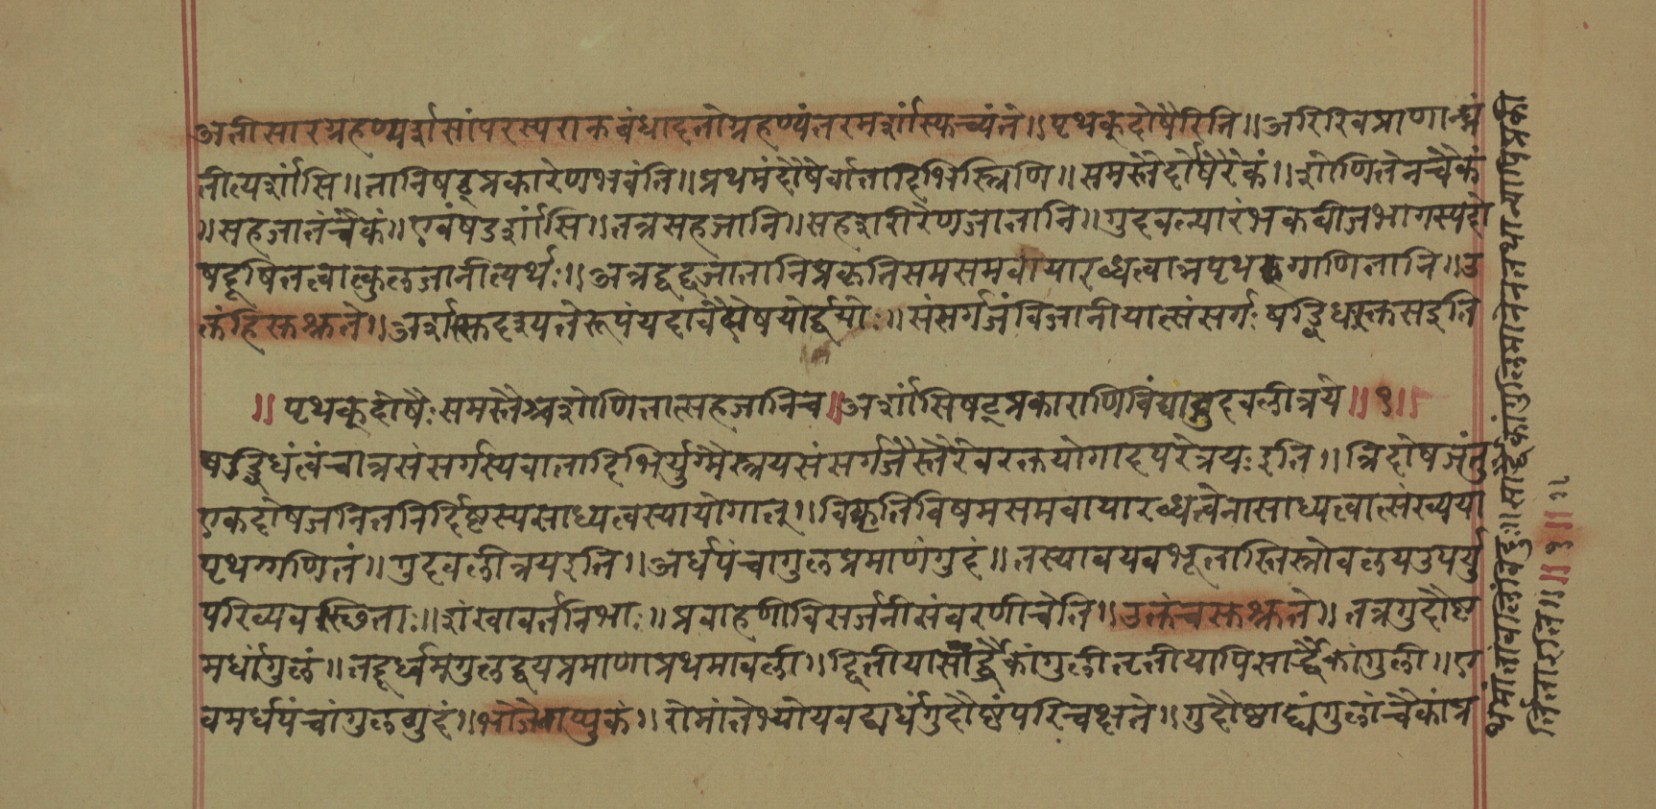 अतीसारग्रहण्यर्शसांपरस्परानुबंधादतोग्रहण्यंतरमर्शांस्युच्यंते॥पृथक्दोषैरिति॥अरिरिवप्राणान्घ्नं
तीत्यर्शांसि॥तानिषट्प्रकारेणभवंति॥प्रथमंदोषैर्वातादिभिस्त्रिणि॥समस्तैर्दोषैरेकं॥शोणितेनचैकं
॥सहजातंचैकं॥एवंषडर्शांसि॥तत्रसहजानि॥सहशरीरेणजातानि॥गुदवल्यारंभकबीजभागस्यदो
षदूषितत्वात्कुलजानीत्यर्थः॥अत्रद्वद्वजातानिप्रकृतिसमसमवायारब्धत्वान्नपृथक्गणितानि॥उ
क्तंहिसुश्रुते॥अर्शस्सुदृश्यतेरूपंयदावैदोषयोर्द्वयोः॥संसर्गजंविजानीयात्संसर्गः षड्विधश्चसइति
॥पृथक्दोषैःसमस्तैश्चशोणितात्सहजानिच॥अर्शांसिषट्प्रकाराणिविंद्याद्गुदवलीत्रये॥१॥
षड्विधंत्वंचात्रसंसर्गस्यवातादिभिर्युग्मैस्त्रयसंसर्गजैस्तैरेवरक्तयोगादपरेत्रयःइति॥त्रिदोषजंतु
एकदोषजनितनिर्दिष्टस्यसाध्यत्वस्यायोगात्॥विकृतिविषमसमवायारब्धत्वेनासाध्यत्वात्संख्यया
पृथग्गणितं॥गुदवलीत्रयइति॥अर्धपंचागुलप्रमाणंगुदं॥तस्यावयवभूतास्तिस्रोवलयउपर्यु
परिव्यवस्थिताः॥शंखावर्तनिभाः॥प्रवाहणीविसर्जनीसंवरणीचेति॥उक्तंचसुश्रुते॥तत्रगुदौष्ट
मर्धांगुलं॥तदूर्ध्वमंगुलद्वयप्रमाणाप्रथमावली॥द्वितीयासार्द्धैकांगुलीतृतीयापिसार्द्धैकांगुली॥ए
वमर्धपंचांगुलगुदं॥भोजेनाप्युक्तं॥रोमांतेभ्योयवद्यर्धंगुदौष्टंपरिचक्षते॥गुदौष्टाद्व्यंगुलांचैकांप्र
थमांतांवलिंविदुः॥सार्द्धैकांगुलिमानेनतथान्यापिप्रकी
र्तिताइति॥॥१॥॥